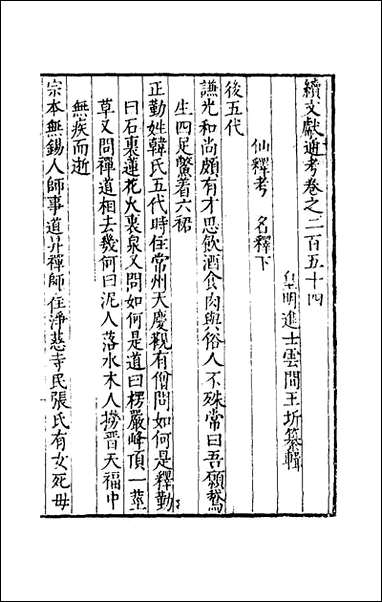 續文獻通考卷之二百五十四
皇明進士雲間王圻纂輯
仙釋考 名釋下
後五代
謙光和尚頗有才思飲酒食肉與俗人不殊常曰吾願鵞
生四足鱉着六裙
正勤姓韓氏五代時住常州天慶觀有僧問如何是釋勤
曰石裏蓮花火裏泉又問如何是道曰楞嚴峰頂一莖
草又問禪道相去幾何曰泥人落水木人撈晉天福中
無疾而逝
宗本無錫人師事道昇禪師住淨慈寺民張氏有女死毋